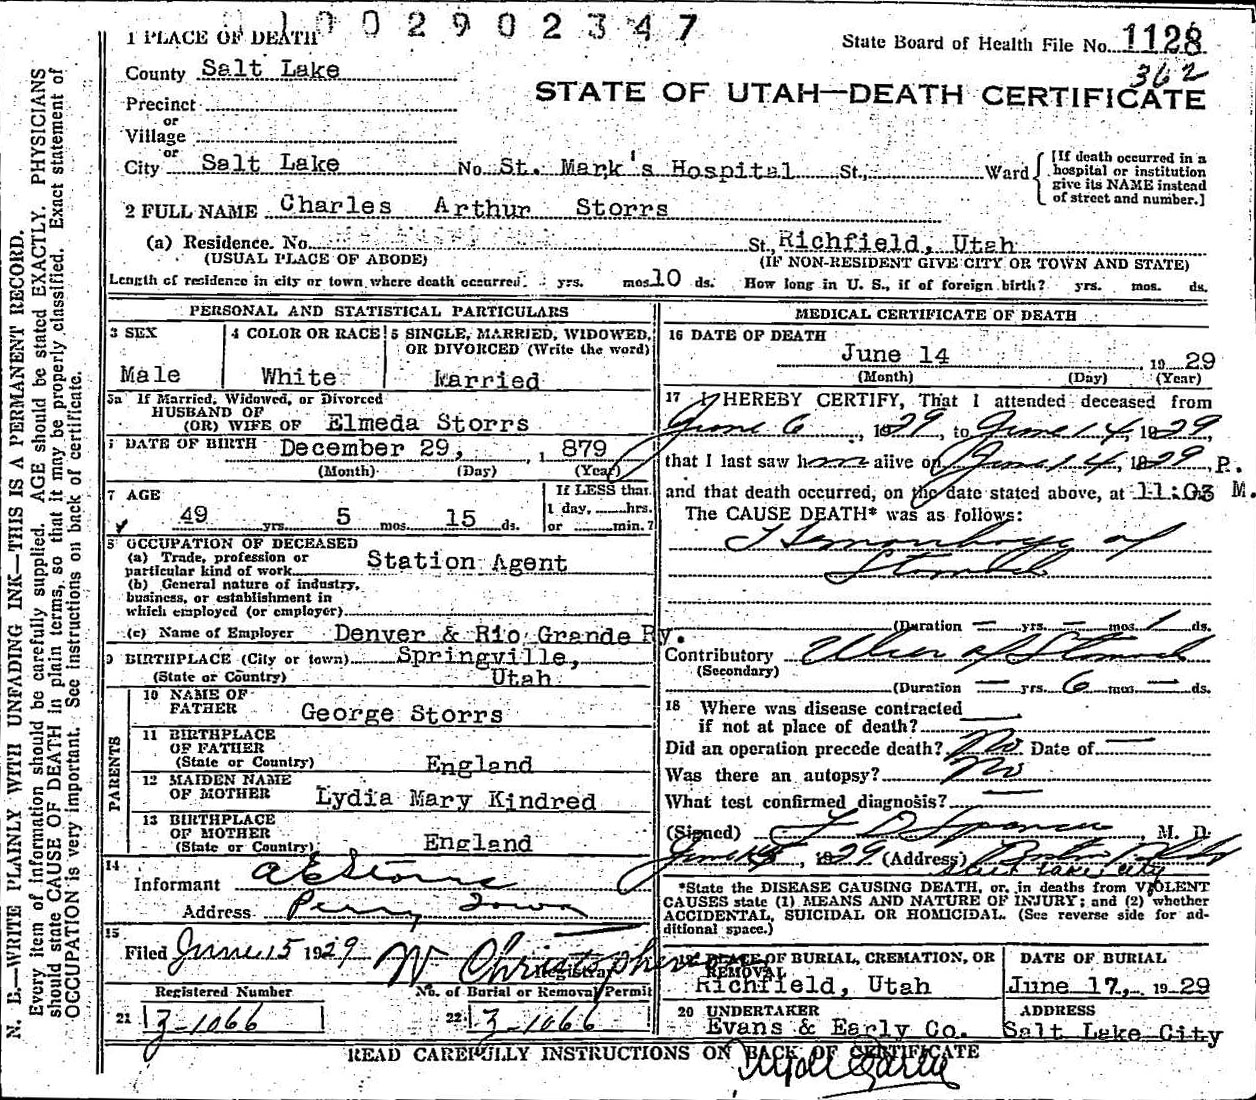 0 1 0 0 2 9 0 2 3 4 7
1 PLACE OF DEATH
State Board of Health File No. 1128
362
County Salt Lake
STATE OF UTAH—DEATH CERTIFICATE
Precinct
or
Village
or
City Salt Lake No. St. Mark's Hospital St., Ward
[If death occurred in a
hospital or institution
give its NAME instead
of street and number.]
2 FULL NAME Charles Arthur Storrs
(a) Residence. No. St. Richfield, Utah
(USUAL PLACE OF ABODE) (IF NON-RESIDENT GIVE CITY OR TOWN AND STATE)
Length of residence in city or town where death occurred. yrs. mos. 10 ds. How long in U. S., if of foreign birth? yrs. mos. ds.
PERSONAL AND STATISTICAL PARTICULARS
3 SEX
Male
4 COLOR OR RACE
White
5 SINGLE, MARRIED, WIDOWED,
OR DIVORCED (Write the word)
Married
5a If Married, Widowed, or Divorced
HUSBAND OF
(OR) WIFE OF Elmeda Storrs
DATE OF BIRTH December 29, 1 879
(Month) (Day) (Year)
7 AGE
49 yrs. 5 mos. 15 ds.
If LESS than
1 day, hrs.
or min.?
OCCUPATION OF DECEASED
(a) Trade, profession or
particular kind of work Station Agent
(b) General nature of industry,
business, or establishment in
which employed (or employer)
(c) Name of Employer Denver & Rio Grande Ry.
9 BIRTHPLACE (City or town) Springville,
(State or Country) Utah
PARENTS
10 NAME OF
FATHER George Storrs
11 BIRTHPLACE
OF FATHER
(State or Country) England
12 MAIDEN NAME
OF MOTHER Lydia Mary Kindred
13 BIRTHPLACE
OF MOTHER
(State or Country) England
14
Informant A E Storrs
Address Perry Iowa
15
Filed June 15 1929 W Christopherson
Registrar
Registered Number No. of Burial or Removal Permit
21 Z-1066 22 Z-1066
MEDICAL CERTIFICATE OF DEATH
16 DATE OF DEATH
June 14 19 29
(Month) (Day) (Year)
17 I HEREBY CERTIFY, That I attended deceased from
June 6, 1929, to June 14, 1929,
that I last saw him alive on June 14, 1929, P.
and that death occurred, on the date stated above, at 11:03 M.
The CAUSE DEATH* was as follows:
Hemorrhage of
Stomach
(Duration — yrs. — mos. 1 ds.
Contributory Ulcer of Stomach
(Secondary)
(Duration — yrs. 6 mos — ds.
18 Where was disease contracted
if not at place of death? —
Did an operation precede death? No Date of —
Was there an autopsy? No
What test confirmed diagnosis? —
(Signed) M. D.
June 15, 1929 (Address)
Salt Lake City
*State the DISEASE CAUSING DEATH, or, in deaths from VIOLENT
CAUSES state (1) MEANS AND NATURE OF INJURY; and (2) whether
ACCIDENTAL, SUICIDAL OR HOMICIDAL. (See reverse side for ad-
ditional space.)
19 PLACE OF BURIAL, CREMATION, OR
REMOVAL
Richfield, Utah
DATE OF BURIAL
June 17, 19 29
20 UNDERTAKER
Evans & Early Co.
ADDRESS
Salt Lake City
READ CAREFULLY INSTRUCTIONS ON BACK OF CERTIFICATE
N. B.—WRITE PLAINLY WITH UNFADING INK—THIS IS A PERMANENT RECORD.
Every item of information should be carefully supplied. AGE should be stated EXACTLY. PHYSICIANS
should state CAUSE OF DEATH in plain terms, so that it may be properly classified. Exact statement of
OCCUPATION is very important. See instructions on back of certificate.